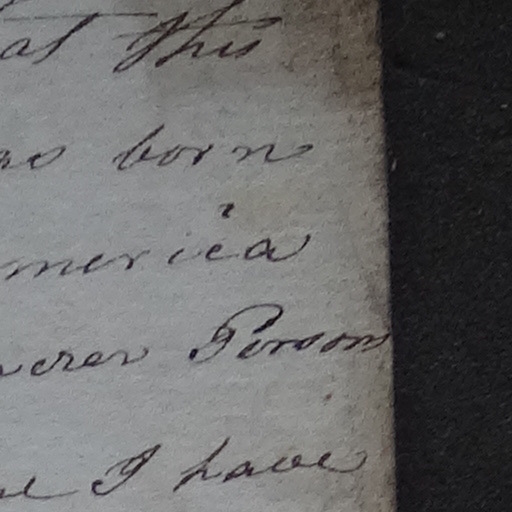 at this
as born
merica
Person
I have